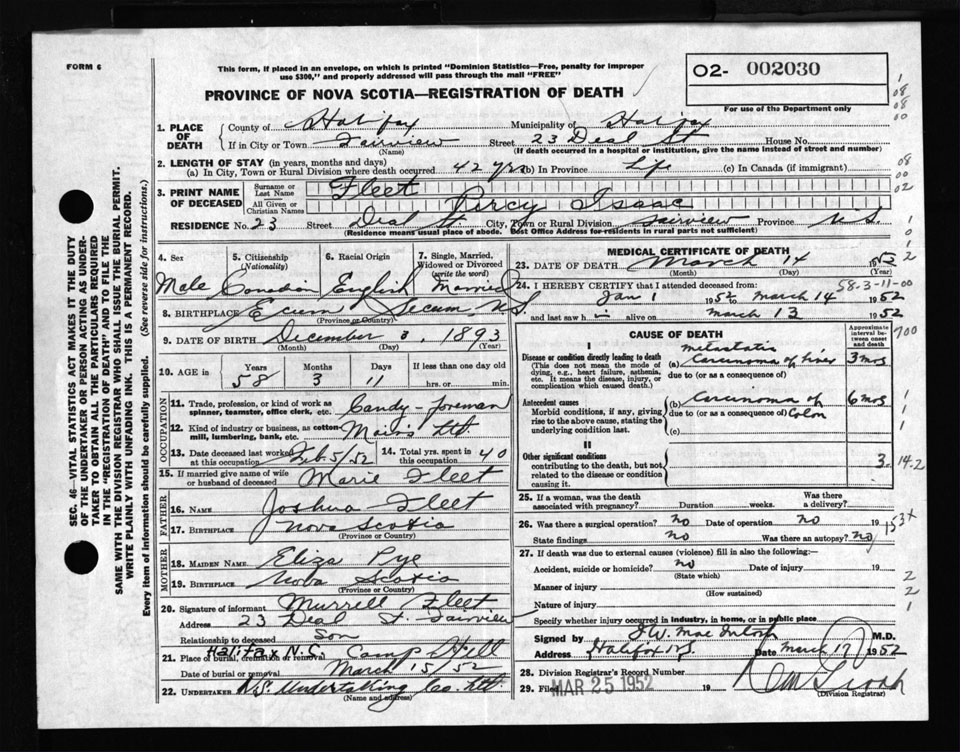 FORM 6
This form, if placed in an envelope, on which is printed "Dominion Statistics—Free, penalty for improper
use $300," and properly addressed will pass through the mail "FREE"
PROVINCE OF NOVA SCOTIA—REGISTRATION OF DEATH
02- 002030
For use of the Department only
SEC. 46—VITAL STATISTICS ACT MAKES IT THE DUTY
OF THE UNDERTAKER OR PERSON ACTING AS UNDER-
TAKER TO OBTAIN ALL THE PARTICULARS REQUIRED
IN THE "REGISTRATION OF DEATH" AND TO FILE THE
SAME WITH THE DIVISION REGISTRAR WHO SHALL ISSUE THE BURIAL PERMIT.
WRITE PLAINLY WITH UNFADING INK. THIS IS A PERMANENT RECORD.
Every item of information should be carefully supplied. (See reverse side for instructions.)
1. PLACE OF DEATH
County of Halifax Municipality of Halifax
If in City or Town Fairview Street 23 Deal St House No.
(Name) (If death occurred in a hospital or institution, give the name instead of street and number)
2. LENGTH OF STAY (in years, months and days)
(a) In City, Town or Rural Division where death occurred 42 yrs (b) In Province Life (c) In Canada (if immigrant)
3. PRINT NAME OF DECEASED
Surname or Last Name Fleet
All Given or Christian Names Percy Isaac
RESIDENCE No. 23 Street Deal St City, Town or Rural Division Fairview Province N.S.
(Residence means usual place of abode. Post Office Address for residents in rural parts not sufficient)
4. Sex Male
5. Citizenship (Nationality) Canadian
6. Racial Origin English
7. Single, Married, Widowed or Divorced (write the word) Married
8. BIRTHPLACE Ecum Secum N.S.
(Province or Country)
9. DATE OF BIRTH December 3, 1893
(Month) (Day)  (Year)
10. AGE in Years 58 Months 3 Days 11 If less than one day old hrs. or min.
OCCUPATION
11. Trade, profession, or kind of work as spinner, teamster, office clerk, etc. Candy-foreman
12. Kind of industry or business, as cotton mill, lumbering, bank, etc. Moirs Ltd
13. Date deceased last worked at this occupation Feb. 5/52 14. Total yrs. spent in this occupation 40
15. If married give name of wife or husband of deceased Marie Fleet
FATHER
16. NAME Joshua Fleet
17. BIRTHPLACE Nova Scotia
(Province or Country)
MOTHER
18. MAIDEN NAME Eliza Pye
19. BIRTHPLACE Nova Scotia
(Province or Country)
20. Signature of informant Murrell Fleet
Address 23 Deal St. Fairview
Relationship to deceased Son
21. Place of burial, cremation or removal Halifax N.S. Camp Hill
Date of burial or removal March 15/52
22. UNDERTAKER N.S. Undertaking Co. Ltd
(Name and address)
MEDICAL CERTIFICATE OF DEATH
23. DATE OF DEATH March 14 1952
(Month) (Day) (Year)
58-3-11-00
24. I HEREBY CERTIFY that I attended deceased from:
Jan 1 1952 March 14 1952
and last saw h im alive on March 13 1952
CAUSE OF DEATH
Approximate interval between onset and death
I
Disease or condition directly leading to death
(This does not mean the mode of dying, e.g., heart failure, asthenia, etc. It means the disease, injury, or complication which caused death.)
(a) Metastatic Carcinoma of Liver 3 mos
due to (or as a consequence of)
Antecedent causes
Morbid conditions, if any, giving rise to the above cause, stating the underlying condition last.
(b) Carcinoma of Colon 6 mos
due to (or as a consequence of)
(c)
II
Other significant conditions
contributing to the death, but not related to the disease or condition causing it.
3. 14.2
25. If a woman, was the death associated with pregnancy? Duration weeks. Was there a delivery?
26. Was there a surgical operation? no Date of operation no 19
State findings no Was there an autopsy? no
153x
27. If death was due to external causes (violence) fill in also the following:—
Accident, suicide or homicide? no Date of injury 19
(State which)
Manner of injury
(How sustained)
Nature of injury
Specify whether injury occurred in industry, in home, or in public place
Signed by J.W. MacIntosh M.D.
Address Halifax N.S. Date March 17 1952
28. Division Registrar's Record Number
29. Filed MAR 25 1952 19
(Division Registrar)